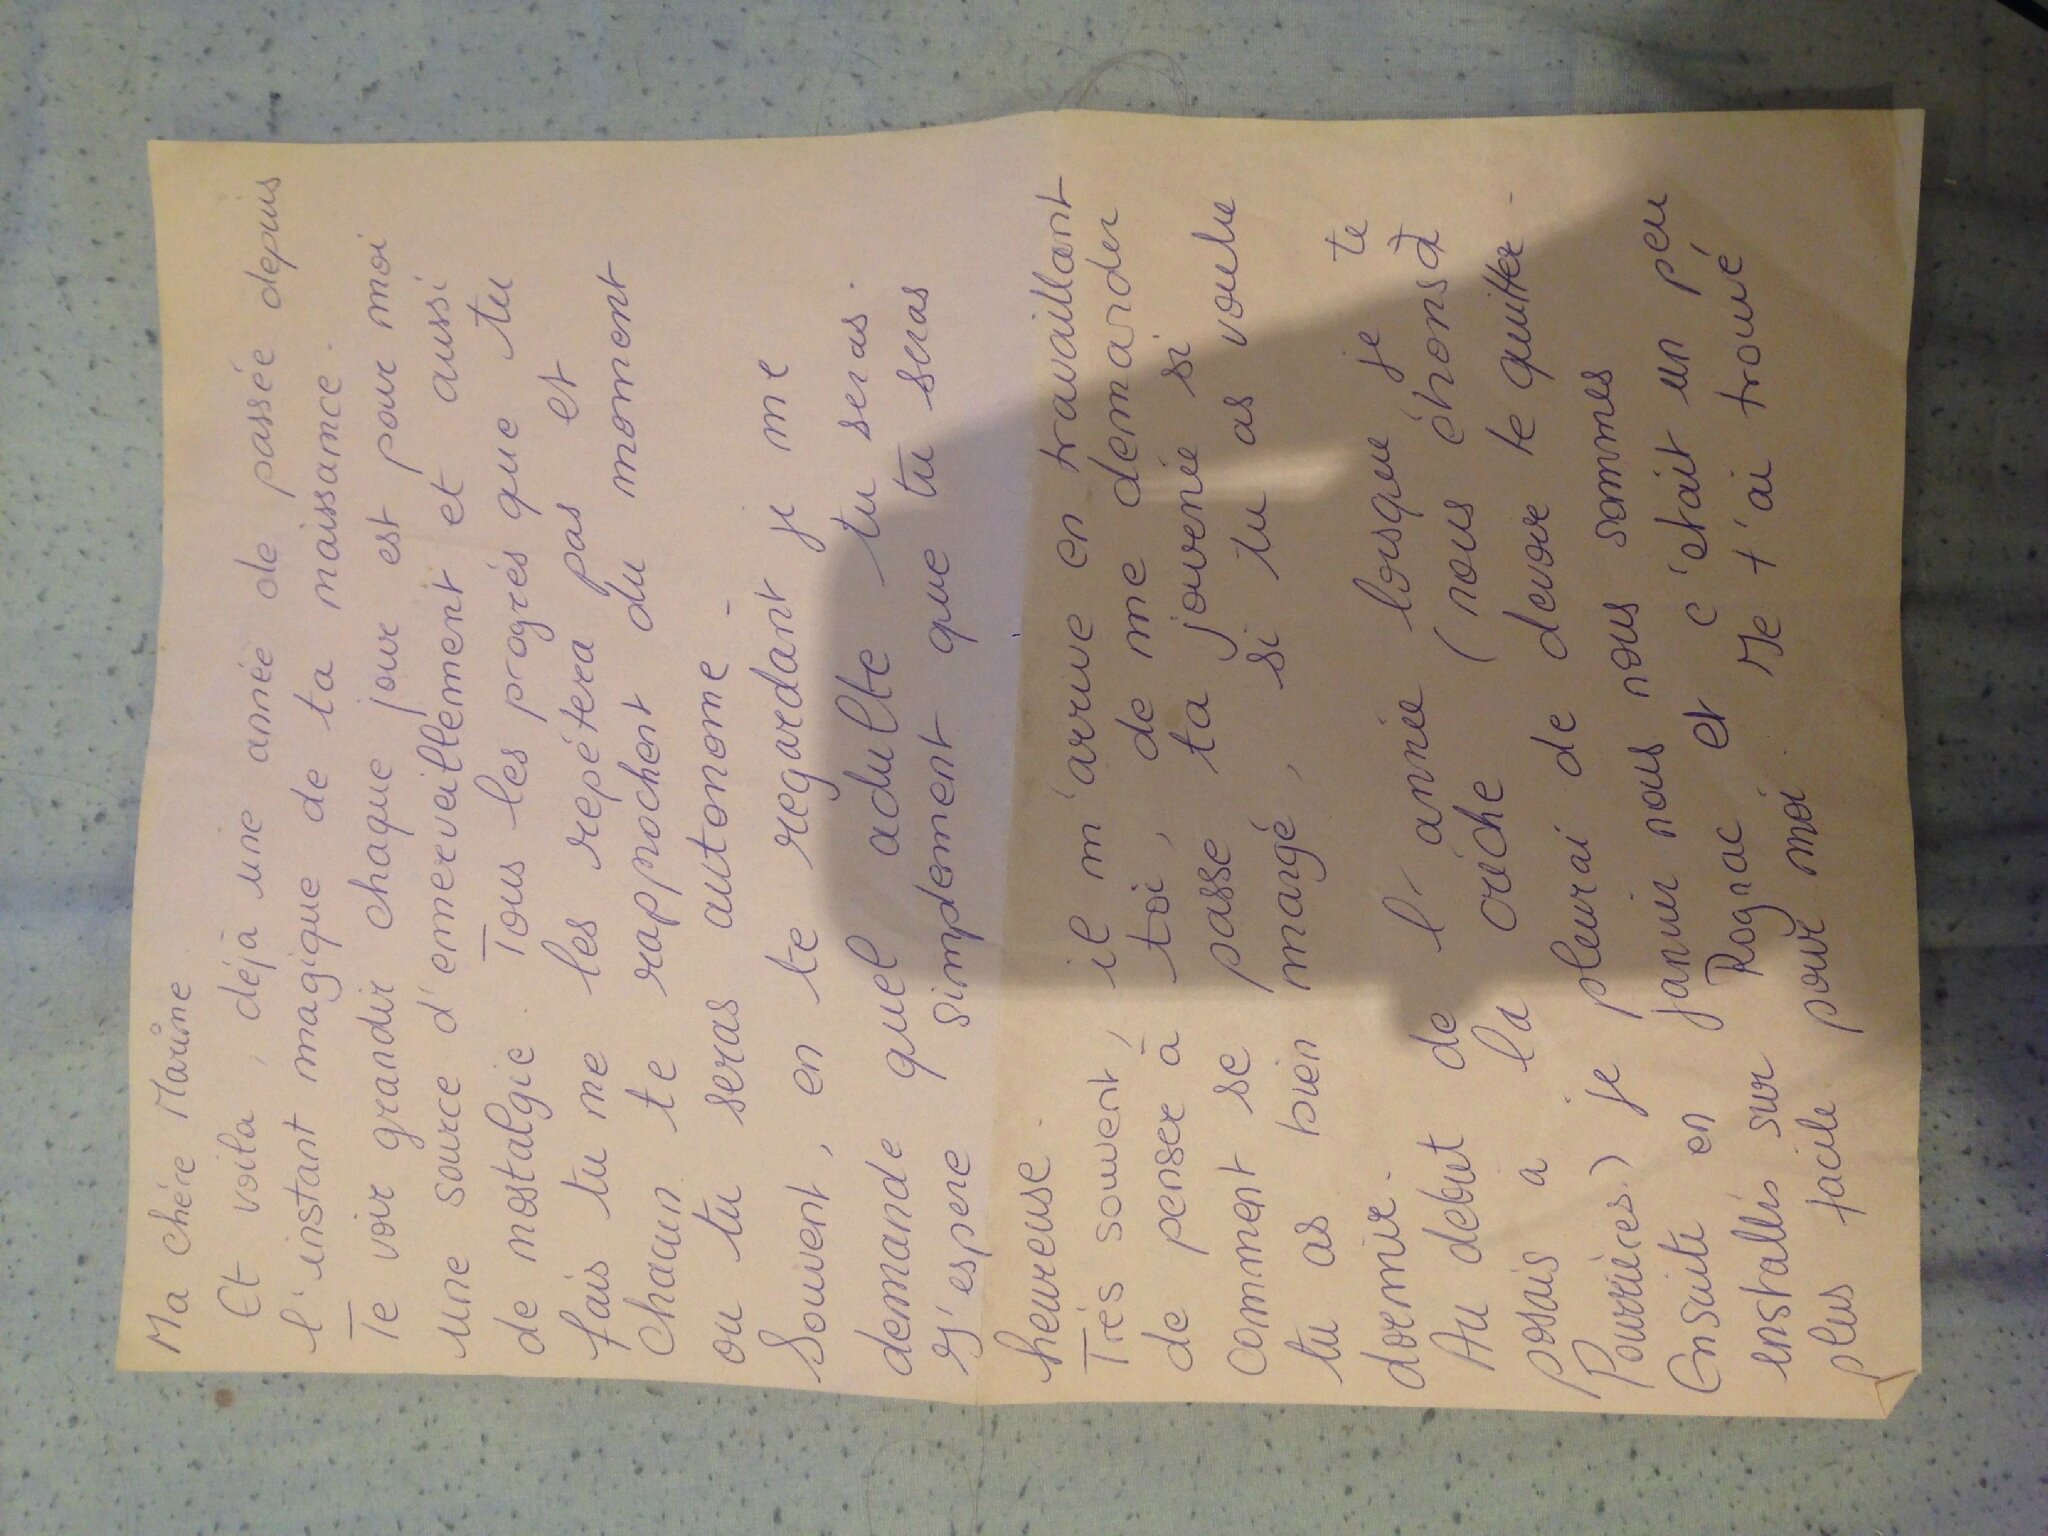 Ma chère Marine
Et voila, déjà une année de passée depuis
l'instant magique de ta naissance.
Te voir grandir chaque jour est pour moi
une source d'emerveillement et aussi
de nostalgie. Tous les progrés que tu
fais tu me les repétera pas et
chacun te rapprochent du moment
ou tu seras autonome -
Souvent, en te regardant je me
demande quel adulte tu seras.
J'espere simplement que tu seras
heureuse.
Très souvent, il m'arrive en travaillant
de penser à toi, de me demander
comment se passe ta journée si
tu as bien mangé, si tu as voulu
dormir.
Au debut de l'année lorsque je te
posais a la crèche (nous étions à
Pourrières) je pleurai de devoir te quitter -
Ensuite en janvier nous nous sommes
installés sur Rognac et c'etait un peu
plus facile pour moi. Je t'ai trouvé